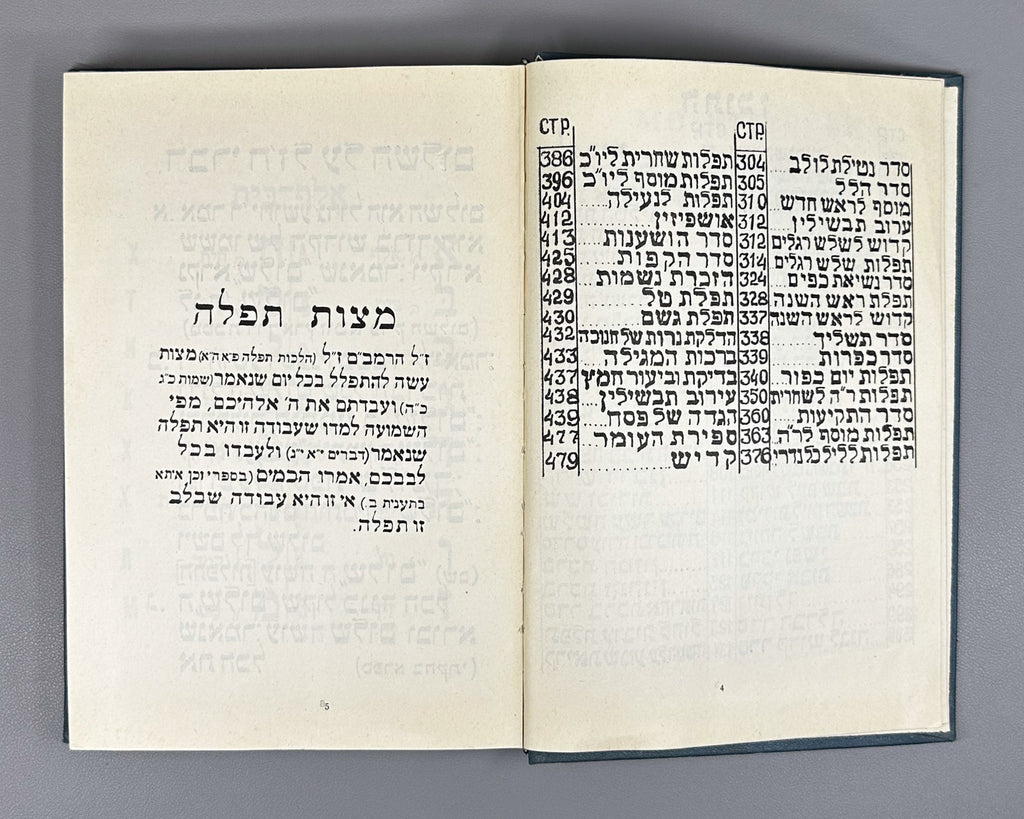 СТР.
סדר נטילת לולב 304
סדר הלל 305
מוסף לראש חדש 310
ערוב תבשילין 312
קדוש לשלש רגלים 312
תפלות שלש רגלים 314
סדר נשיאת כפים 324
תפלת ראש השנה 328
קדוש לראש השנה 337
סדר תשליך 338
סדר כפרות 339
תפלות יום כפור 340
תפלות ר"ה לשחרית 350
סדר התקיעות 360
תפלות מוסף לר"ה 363
תפלות לליל כל נדרי 376
СТР.
תפלות שחרית ליו"כ 386
תפלות מוסף ליו"כ 396
תפלות לנעילה 404
אושפיזין 412
סדר הושענות 413
סדר הקפות 425
הזכרת נשמות 428
תפלת טל 429
תפלת גשם 430
הדלקת נרות של חנוכה 432
ברכות המגילה 433
בדיקת וביעור חמץ 437
עירוב תבשילין 438
הגדה של פסח 439
ספירת העומר 477
קדיש 479
4
מצות תפלה
ז"ל הרמב"ם ז"ל (הלכות תפלה פ"א ה"א) מצות
עשה להתפלל בכל יום שנאמר (שמות כ"ג
כ"ה) ועבדתם את ה' אלהיכם, מפי
השמועה למדו שעבודה זו היא תפלה
שנאמר (דברים י"א י"ג) ולעבדו בכל
לבבכם, אמרו חכמים (בספרי וכן איתא
בתענית ב.) אי זו היא עבודה שבלב
זו תפלה.
5